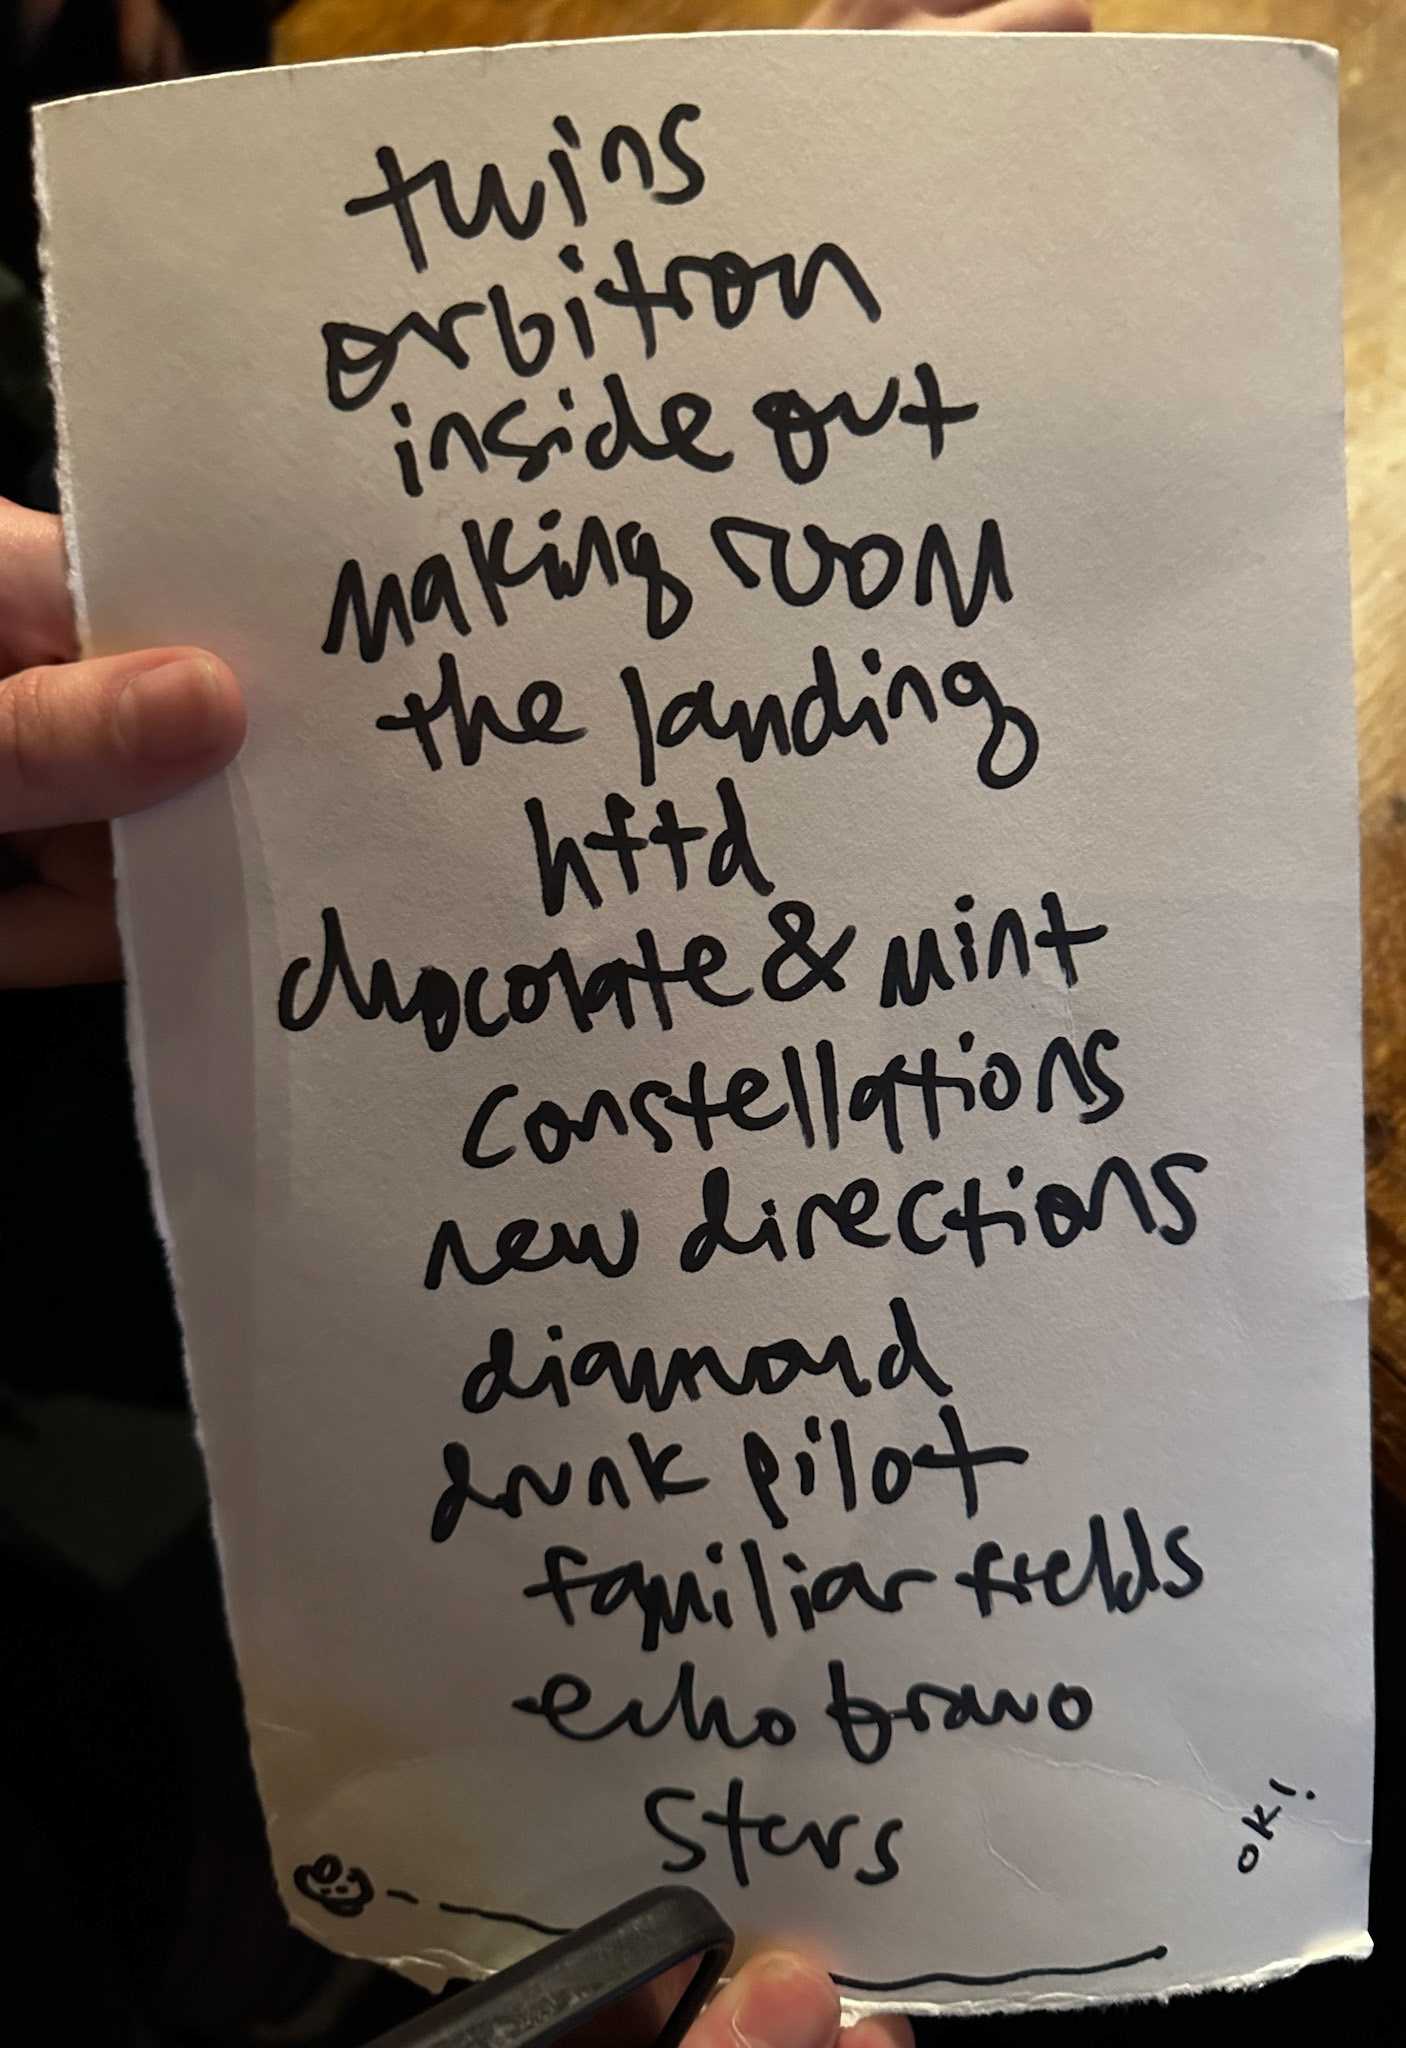 twins
orbitron
inside out
making room
the landing
hftd
chocolate & mint
constellations
new directions
diamond
drunk pilot
familiar fields
echo bravo
stars
OK!